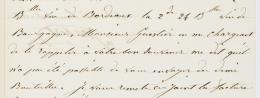 Blles vin de Bordeaux le 2d 26 Blles vin de
Bourgogne, Monsieur Guestier en me chargeant
de le rappeler à votre bon souvenir me dit qu'il
n'a pas été possible de vous envoyer de demi
Bouteilles. je vous remets ci joint la facture